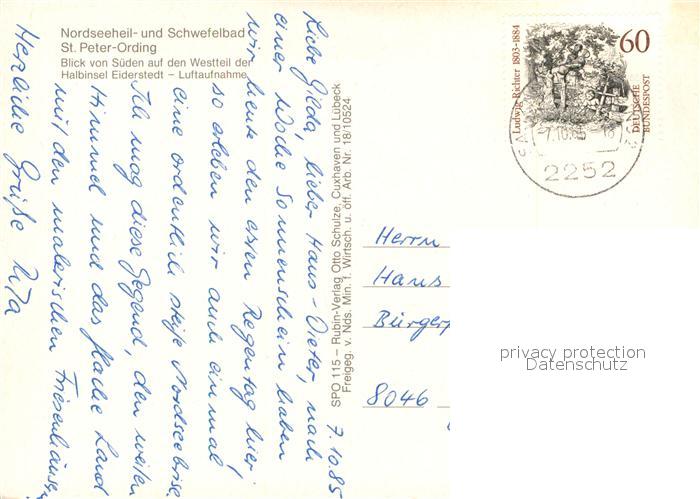 Nordseeheil- und Schwefelbad
St. Peter-Ording
Blick von Süden auf den Westteil der
Halbinsel Eiderstedt – Luftaufnahme
7.10.85
Liebe Gilda, lieber Hans-Dieter, nach
einer Woche Sonnenschein haben
wir heute den ersten Regentag hier,
so erleben wir auch einmal
eine ordentlich steife Nordseebrise.
Ich mag diese Gegend, den weiten
Himmel und das flache Land
mit den malerischen Friesenhäusern
Herzliche Grüße Uta
SPO 115 – Rubin-Verlag Otto Schulze, Cuxhaven und Lübeck
Freigeg. v. Nds. Min. f. Wirtsch. u. öff. Arb. Nr. 18/10524
Ludwig Richter 1803-1884
60
DEUTSCHE
BUNDESPOST
7.10.85
18
2252
Herrn
Hans
8046
privacy protection
Datenschutz